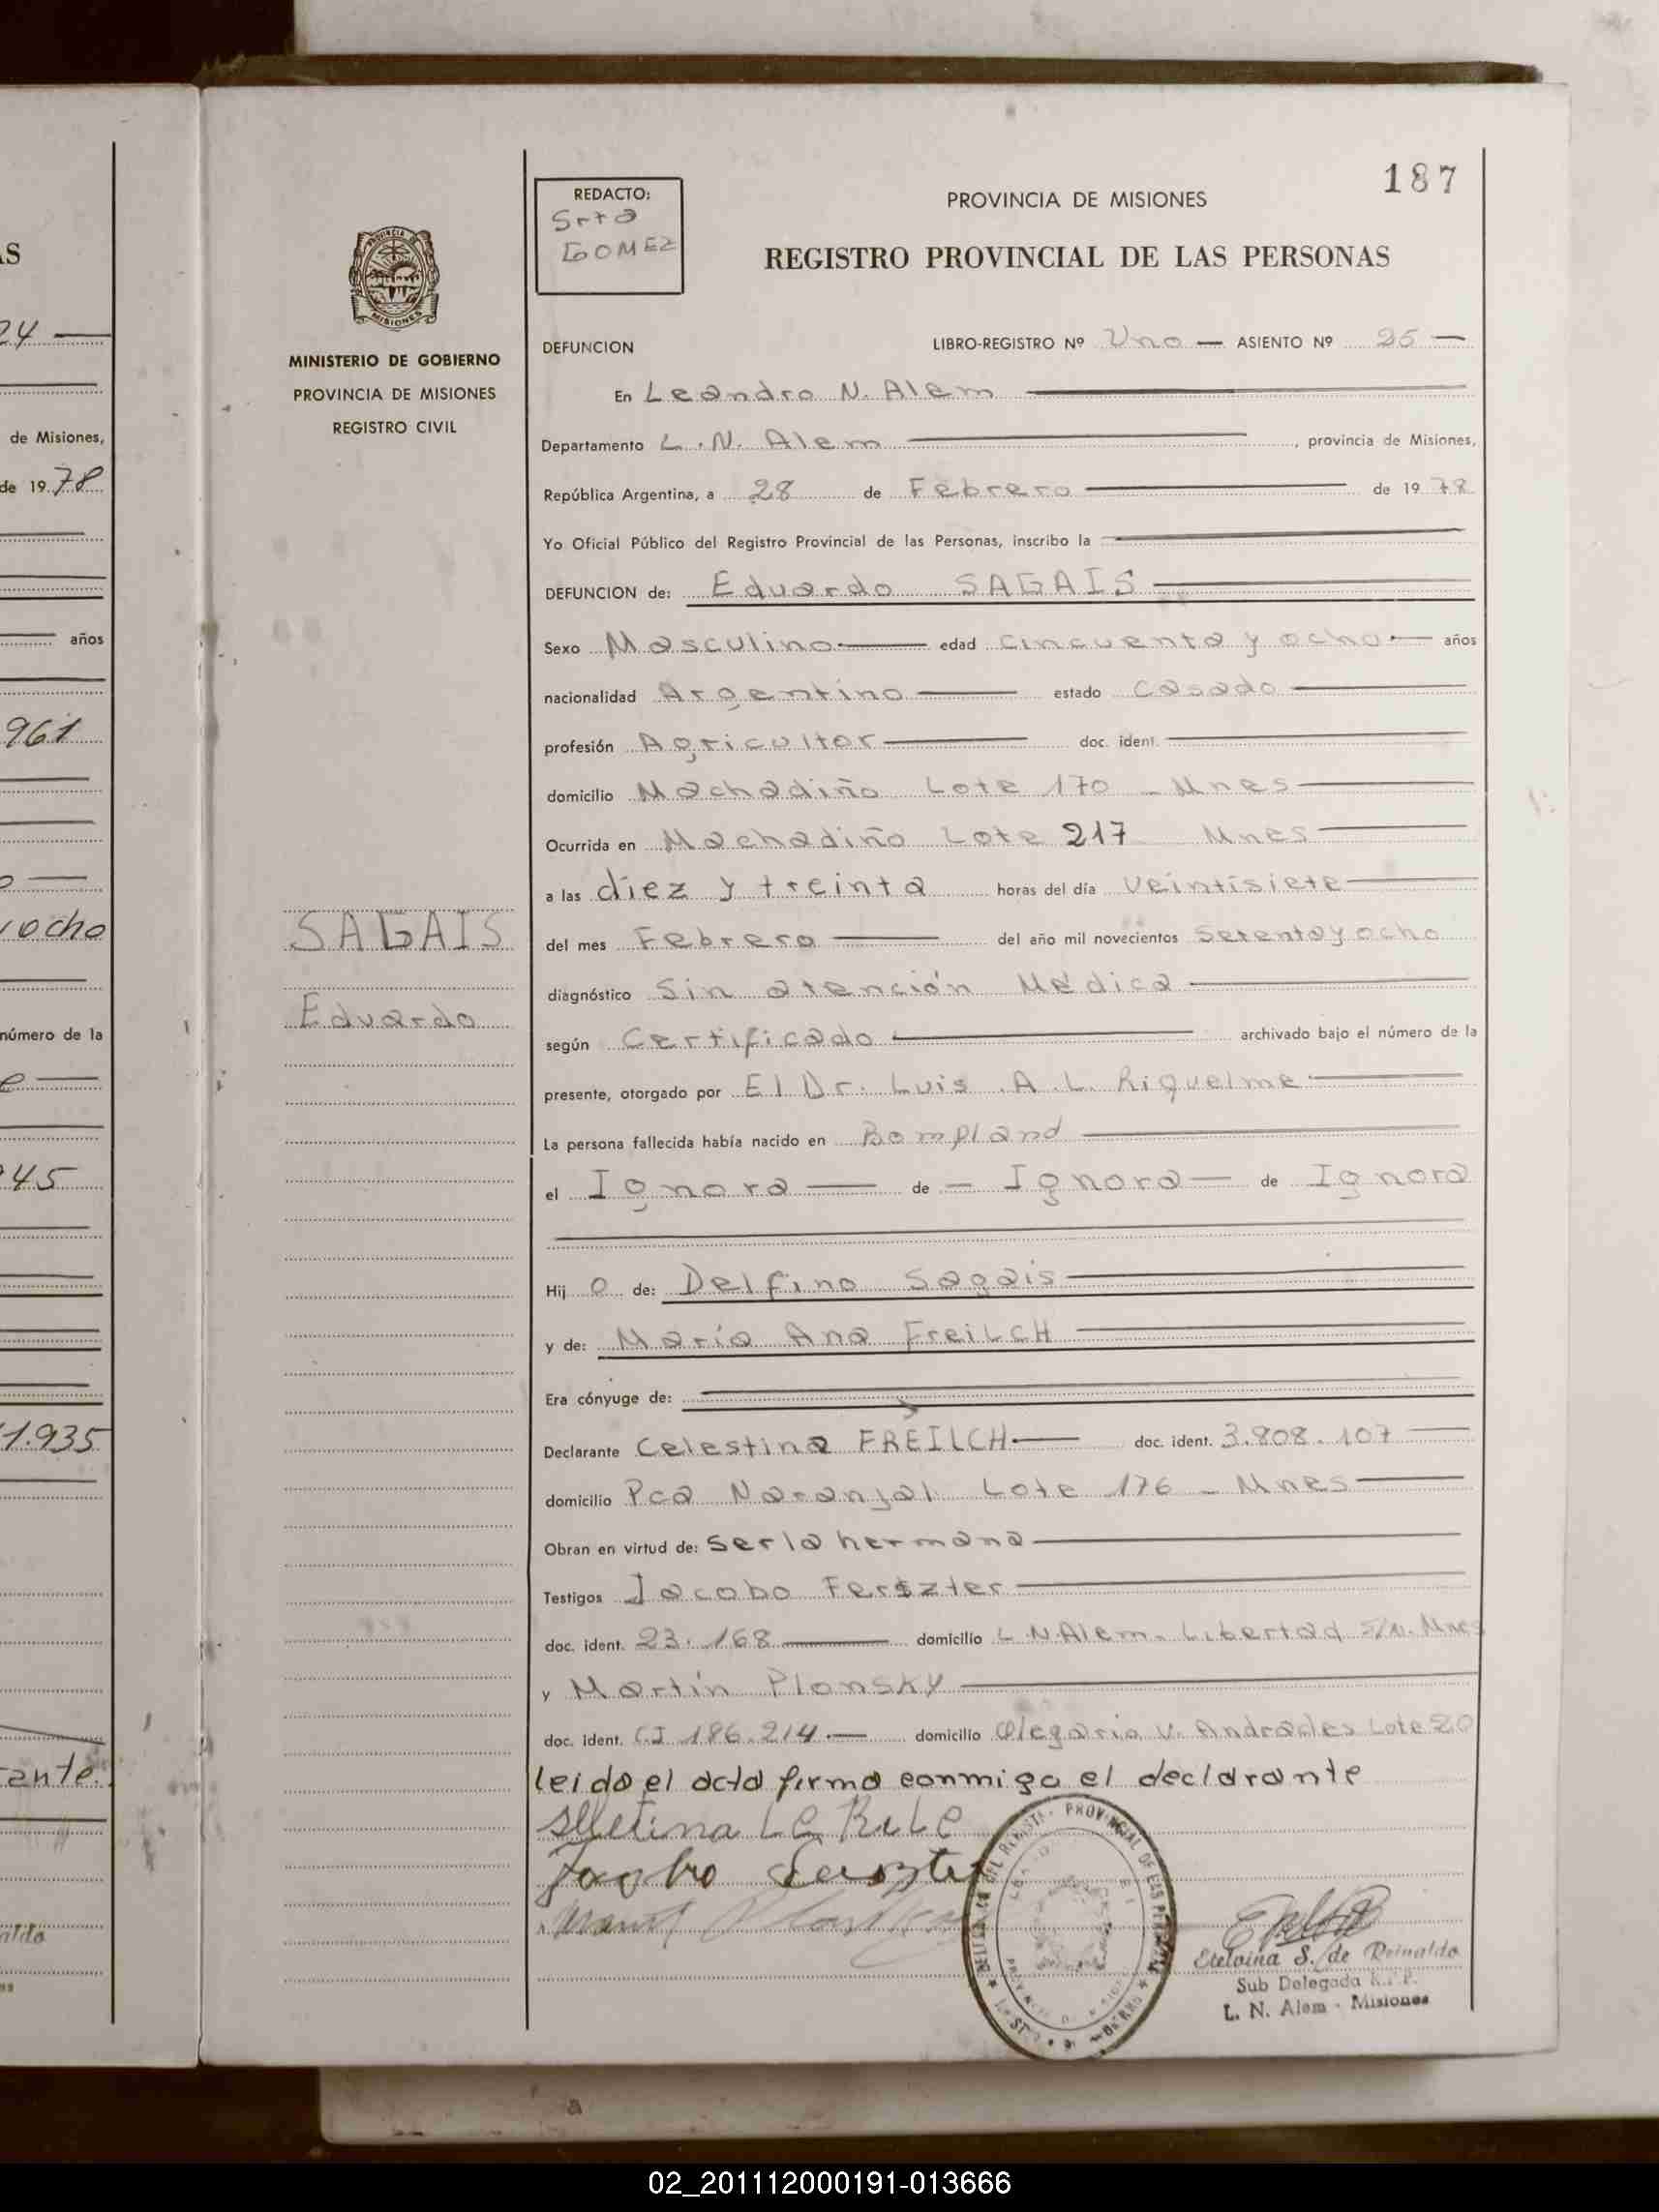 187
REDACTO:
Srta
GOMEZ
PROVINCIA DE MISIONES
REGISTRO PROVINCIAL DE LAS PERSONAS
MINISTERIO DE GOBIERNO
PROVINCIA DE MISIONES
REGISTRO CIVIL
DEFUNCION LIBRO-REGISTRO Nº Uno — ASIENTO Nº 25 —
En Leandro N. Alem
Departamento L. N. Alem, provincia de Misiones,
República Argentina, a 28 de Febrero de 1978
Yo Oficial Público del Registro Provincial de las Personas, inscribo la
DEFUNCION de: Eduardo SAGAIS
Sexo Masculino edad cincuenta y ocho años
nacionalidad Argentino estado casado
profesión Agricultor doc. ident.
domicilio Machadiño Lote 170 - Mnes
Ocurrida en Machadiño Lote 217 Mnes
a las diez y treinta horas del día veintisiete
del mes Febrero del año mil novecientos setenta y ocho
diagnóstico Sin atención Médica
según Certificado archivado bajo el número de la
presente, otorgado por El Dr. Luis A. L. Riquelme
La persona fallecida había nacido en Bompland
el Ignora — de — Ignora — de Ignora
Hijo de: Delfino Sagais
y de: María Ana FreiLCH
Era cónyuge de:
Declarante Celestina FREILCH doc. ident. 3.808.107
domicilio Pca Naranjal Lote 176 - Mnes
Obran en virtud de: ser la hermana
Testigos Jacobo Ferszter
doc. ident. 23.168 domicilio L N Alem - Libertad S/N. Mnes
y Martín Plonsky
doc. ident. C.I 186.214 — domicilio Olegario V. Andrades Lote 20
leido el acta firma conmigo el declarante
SAGAIS
Eduardo
Etelvina S. de Reinaldo
Sub Delegada R.P.P.
L. N. Alem - Misiones
AS
24 —
de Misiones,
de 1978
años
961
ocho
número de la
45
1.935
ante.
02_201112000191-013666